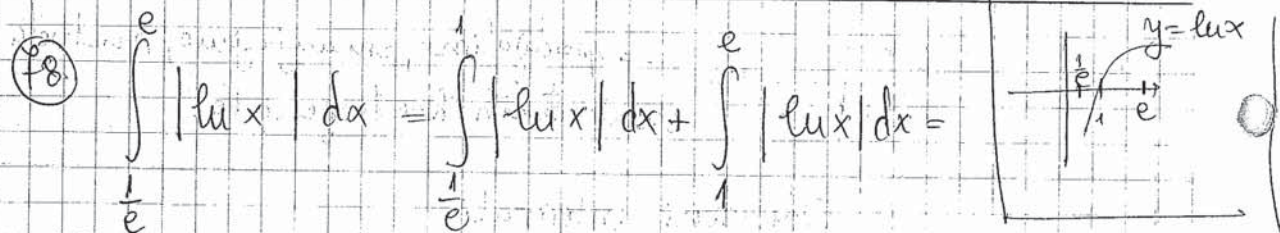 78 ∫_{1/e}^{e} |ln x| dx = ∫_{1/e}^{1} |ln x| dx + ∫_{1}^{e} |ln x| dx =
y = ln x
1/e 1 e